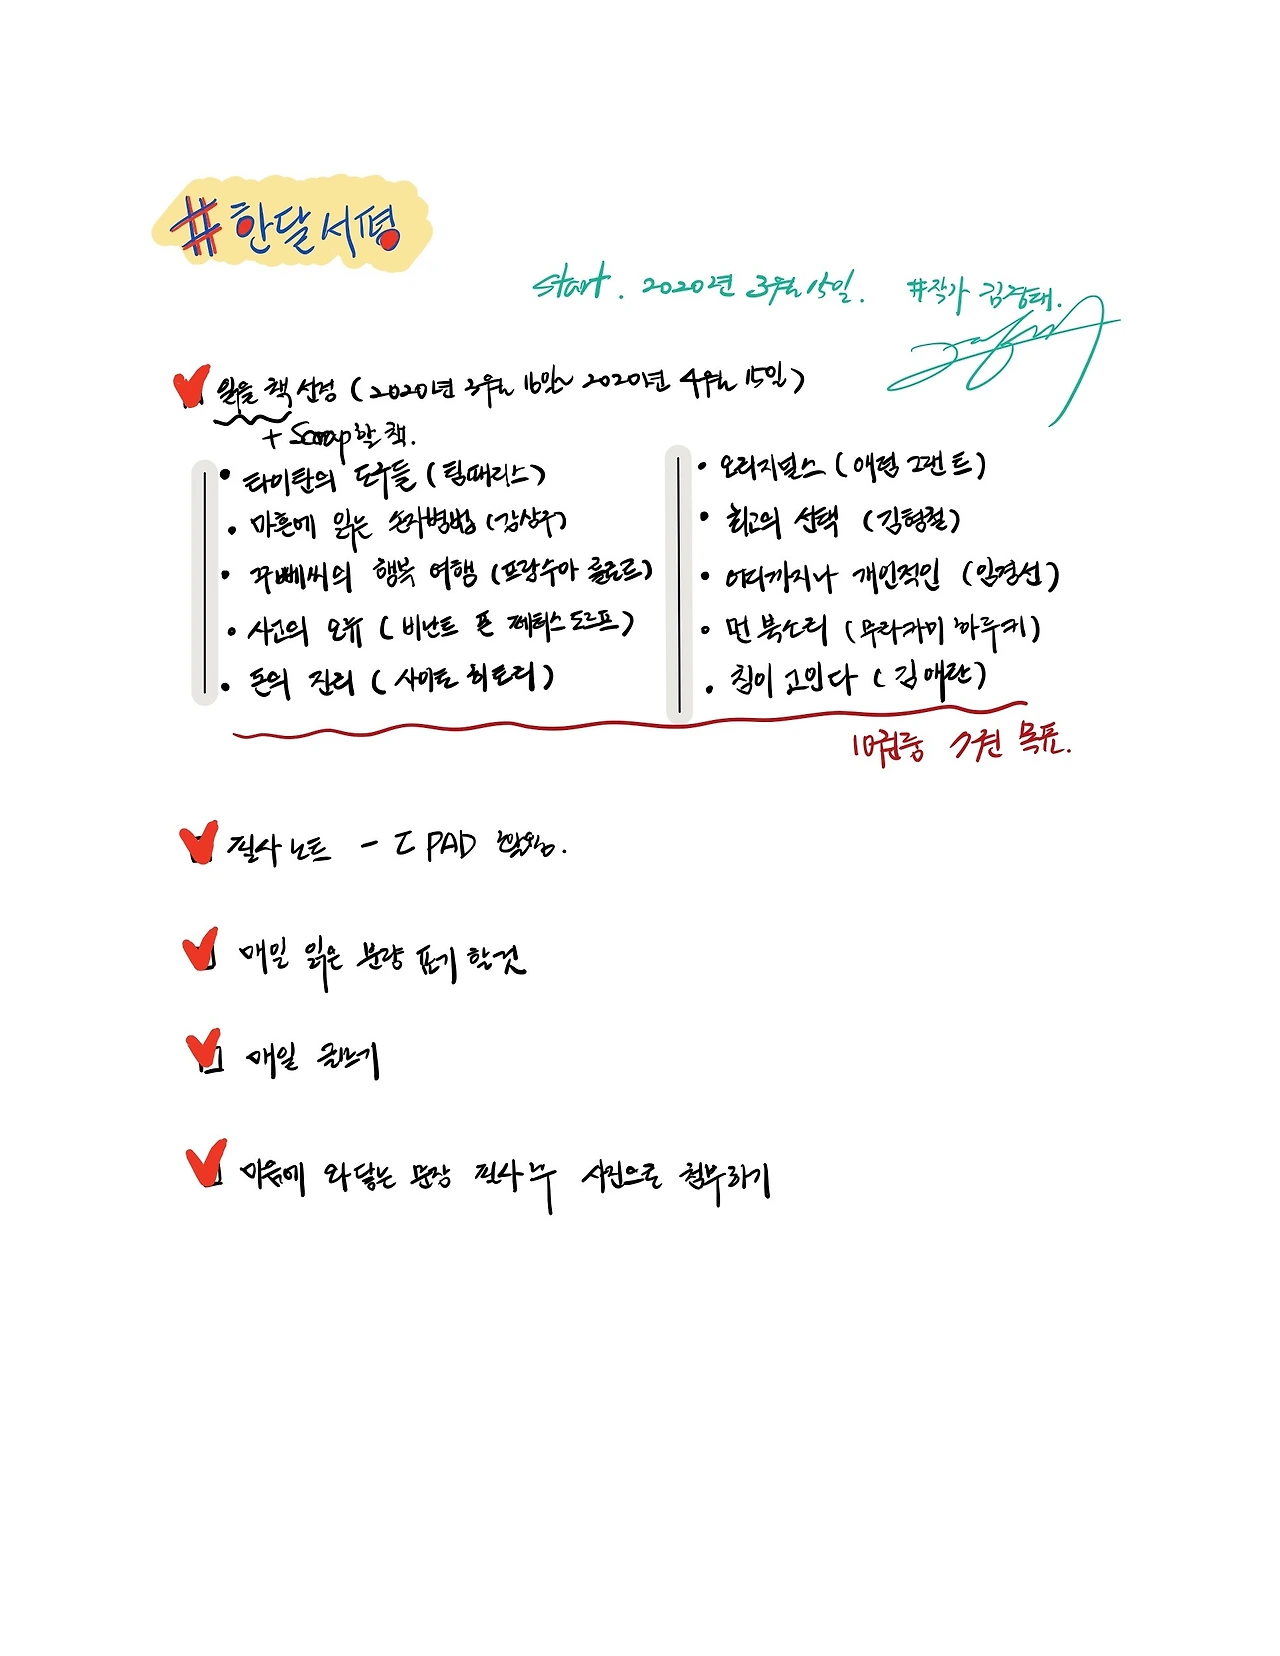 #한달서평
start. 2020년 3월 15일. #작가 김경태.
읽을 책 선정 (2020년 3월 16일~ 2020년 4월 15일)
+ Scrap할 책.
• 타이탄의 도구들 (팀페리스)
• 마흔에 읽는 손자병법 (강상구)
• 꾸뻬씨의 행복 여행 (프랑수아 를로르)
• 사고의 오류 (비난트 폰 페터스도르프)
• 돈의 진리 (사이토 히토리)
• 오리지널스 (애덤 그랜트)
• 최고의 선택 (김형철)
• 어디까지나 개인적인 (임경선)
• 먼 북소리 (무라카미 하루키)
• 침이 고인다 (김애란)
10권중 7권 목표.
필사노트 - I PAD 활용.
매일 읽은 분량 표기 할것
매일 글쓰기
마음에 와닿는 문장 필사 후 사진으로 첨부하기